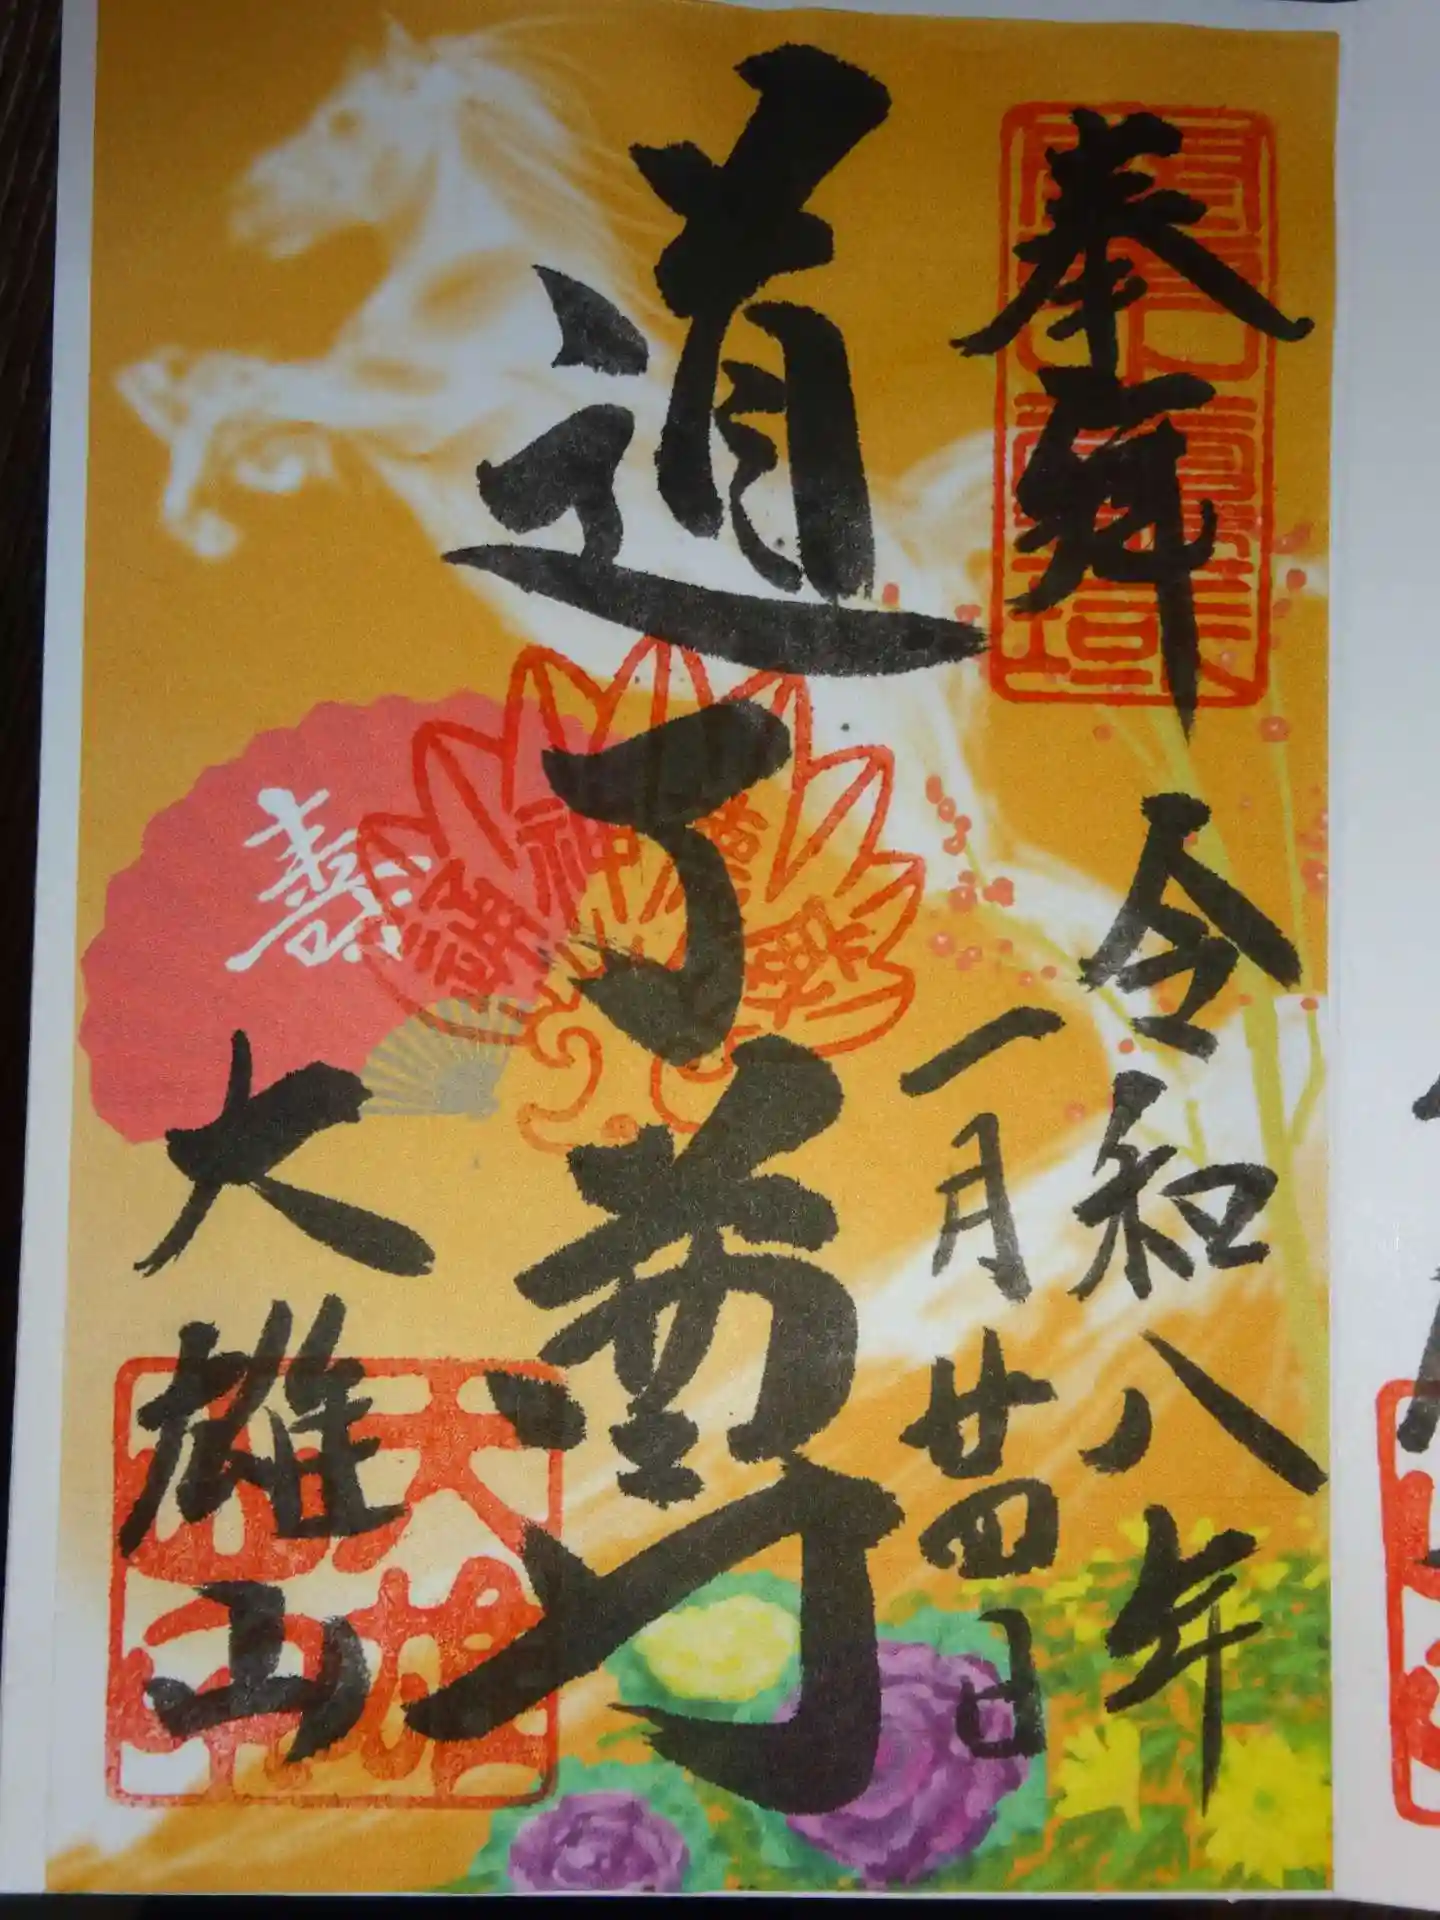 奉拝
令和八年
一月廿四日
道了尊
壽
大雄山